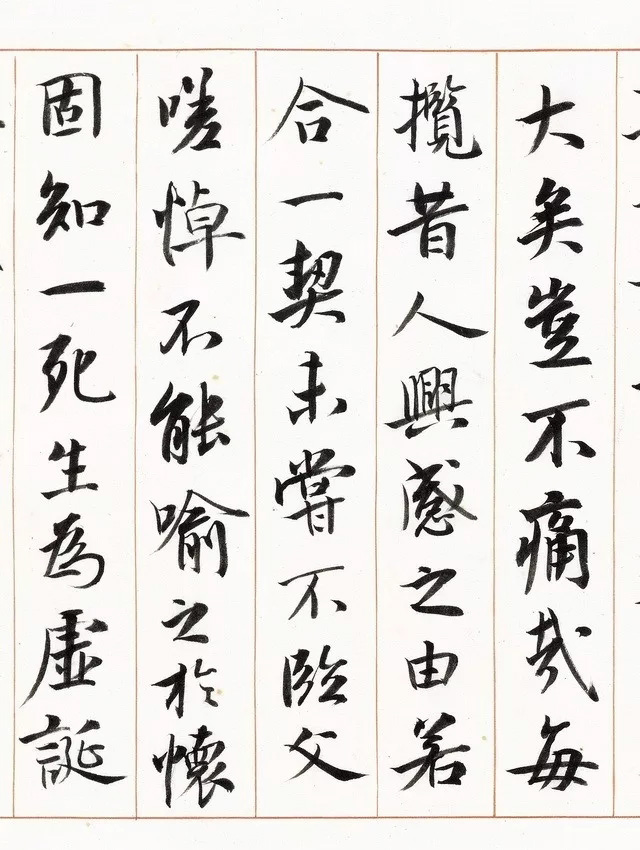 大矣豈不痛哉每
攬昔人興感之由若
合一契未嘗不臨文
嗟悼不能喻之於懷
固知一死生為虛誕